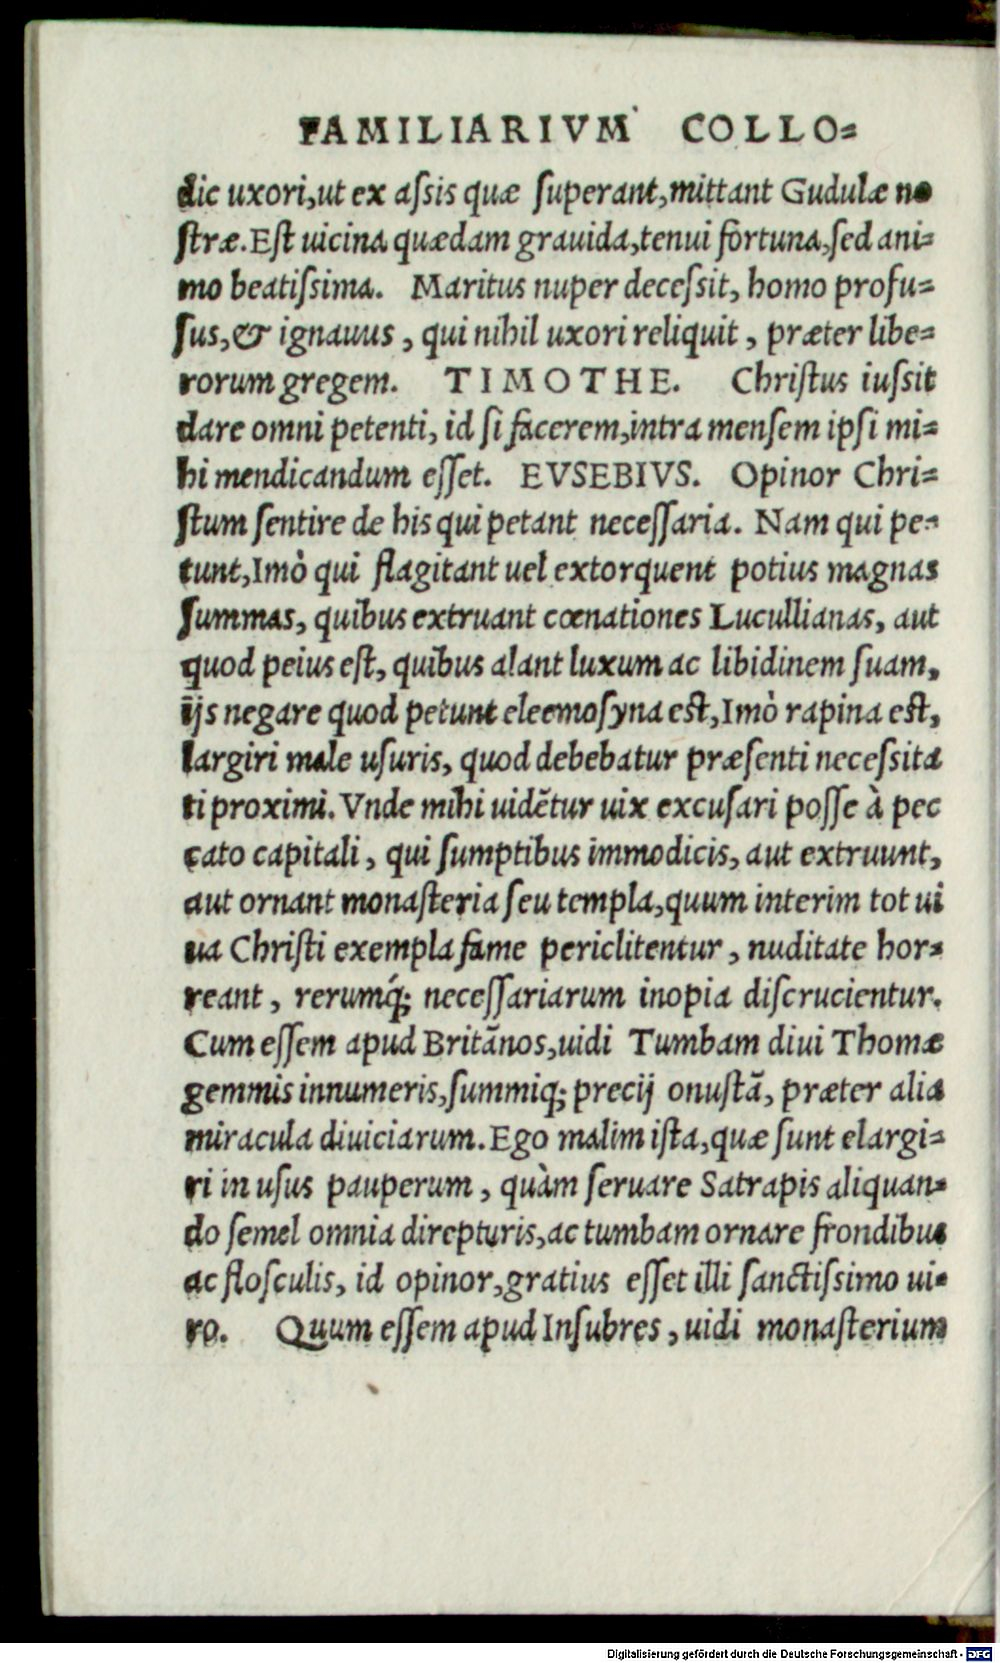 FAMILIARIVM COLLO=
dic uxori,ut ex aſsis quæ ſuperant,mittant Gudulæ no
ſtræ.Eſt uicina quædam grauida,tenui fortuna,ſed ani=
mo beatiſsima. Maritus nuper deceſsit, homo profu=
ſus,& ignauus , qui nihil uxori reliquit , præter libe=
rorum gregem. TIMOTHE. Chriſtus iuſsit
dare omni petenti, id ſi facerem,intra menſem ipſi mi=
hi mendicandum eſſet. EVSEBIVS. Opinor Chri=
ſtum ſentire de his qui petant neceſſaria. Nam qui pe=
tunt,Imò qui flagitant uel extorquent potius magnas
ſummas, quibus extruant cœnationes Lucullianas, aut
quod peius eſt, quibus alant luxum ac libidinem ſuam,
ijs negare quod petunt eleemoſyna eſt,Imò rapina eſt,
largiri male uſuris, quod debebatur præſenti neceſsita
ti proximi. Vnde mihi uidẽtur uix excuſari poſſe à pec
cato capitali , qui ſumptibus immodicis, aut extruunt,
aut ornant monaſteria ſeu templa,quum interim tot ui
ua Chriſti exempla fame periclitentur , nuditate hor=
reant , rerumq́; neceſſariarum inopia diſcrucientur.
Cum eſſem apud Britãnos,uidi Tumbam diui Thomæ
gemmis innumeris,ſummiq; precij onuſtã, præter alia
miracula diuiciarum. Ego malim iſta,quæ ſunt elargi=
ri in uſus pauperum , quàm ſeruare Satrapis aliquan=
do ſemel omnia direpturis,ac tumbam ornare frondibus
ac floſculis, id opinor,gratius eſſet illi ſanctiſsimo ui=
ro. Quum eſſem apud Inſubres , uidi monaſterium
Digitalisierung gefördert durch die Deutsche Forschungsgemeinschaft - DFG